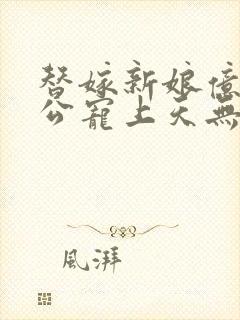 替嫁新娘億
公寵上天無
風湃